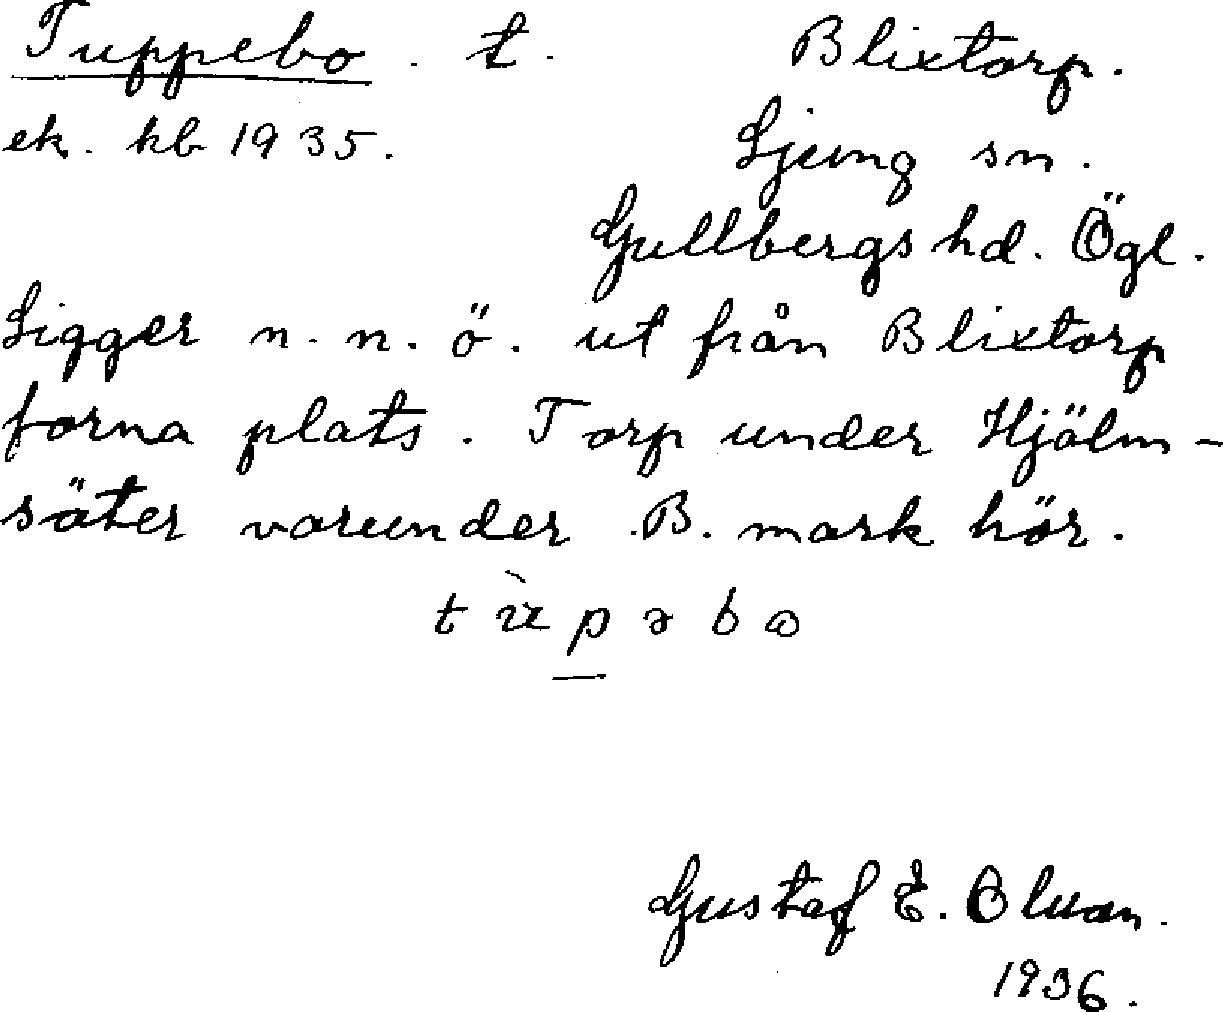 Tuppebo. t. Blixtorp.
ek. kb 1935. Ljung sn.
Gullbergs hd. Ögl.
Ligger n. n. ö. ut från Blixtorp
forna plats. Torp under Hjälm-
säter varunder B. mark hör.
Gustaf E.
1936.